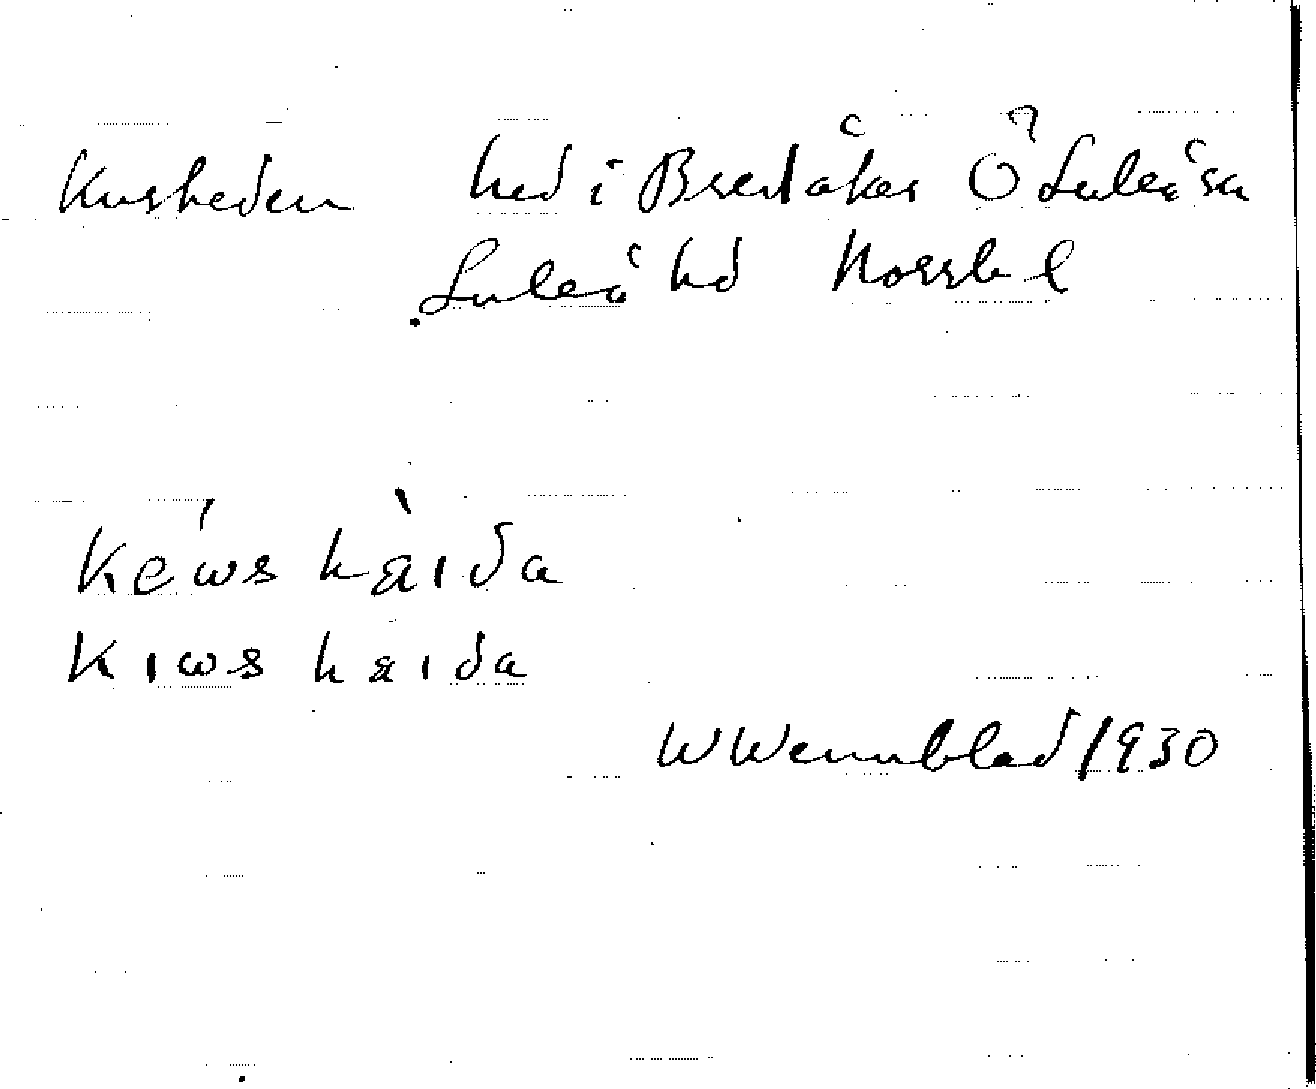 Kusheden hed i Bredåker Ö Luleå sn
Luleå hd Norrb l
Kéws hàıda
Kıws haıda
W Wennblad 1930